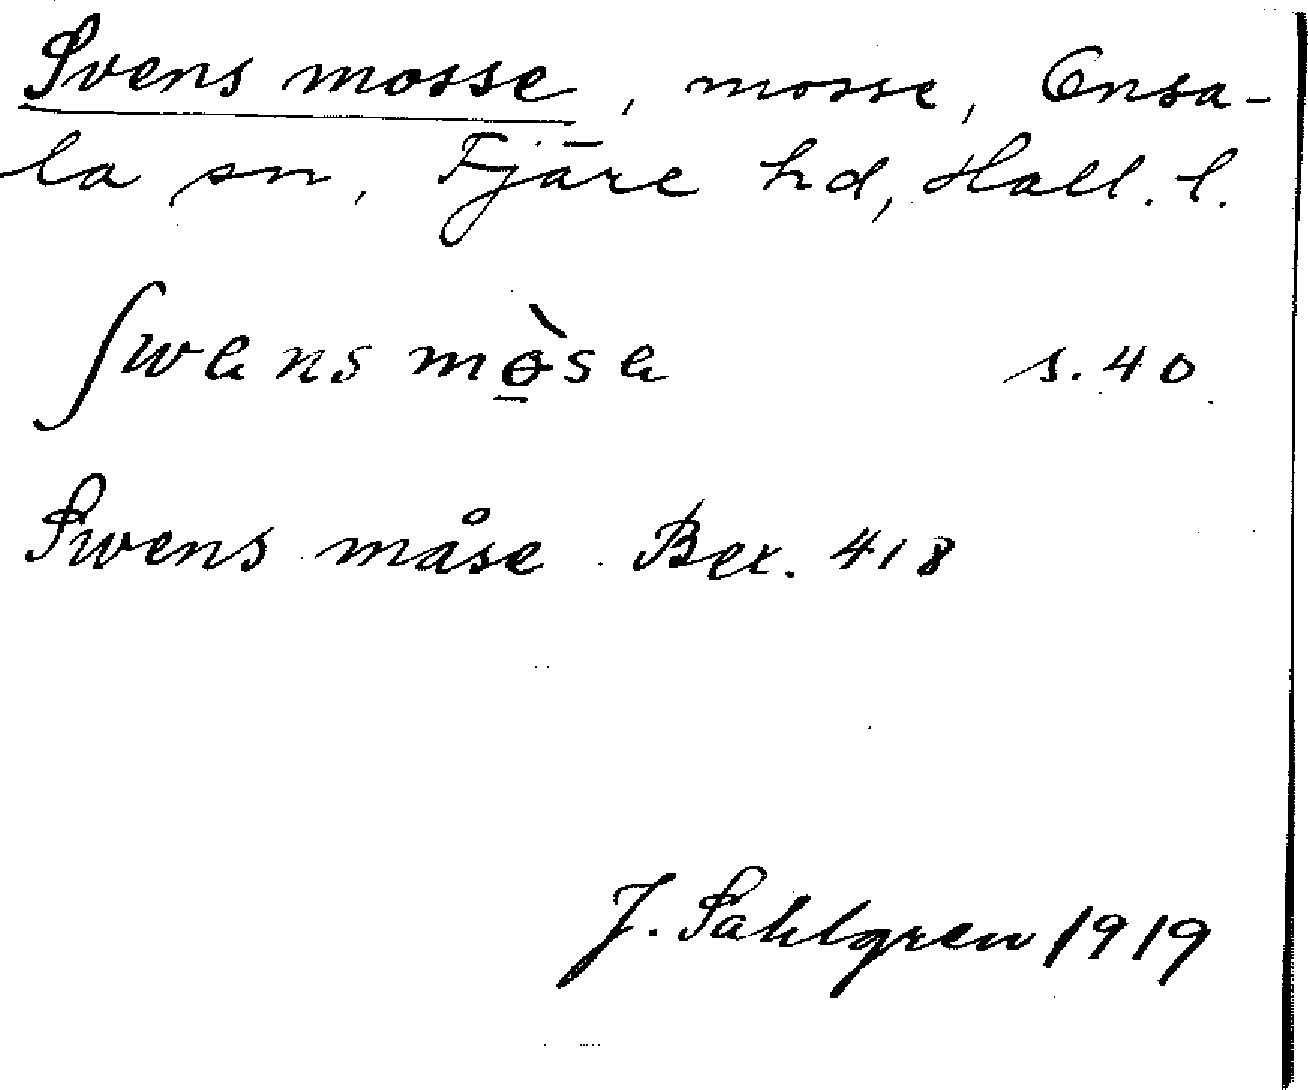 Svens mosse, mosse, Onsa-
la sn, Fjäre hd, Hall. l.
s. 40
Swens måse Bex. 418
J. Sahlgren 1919